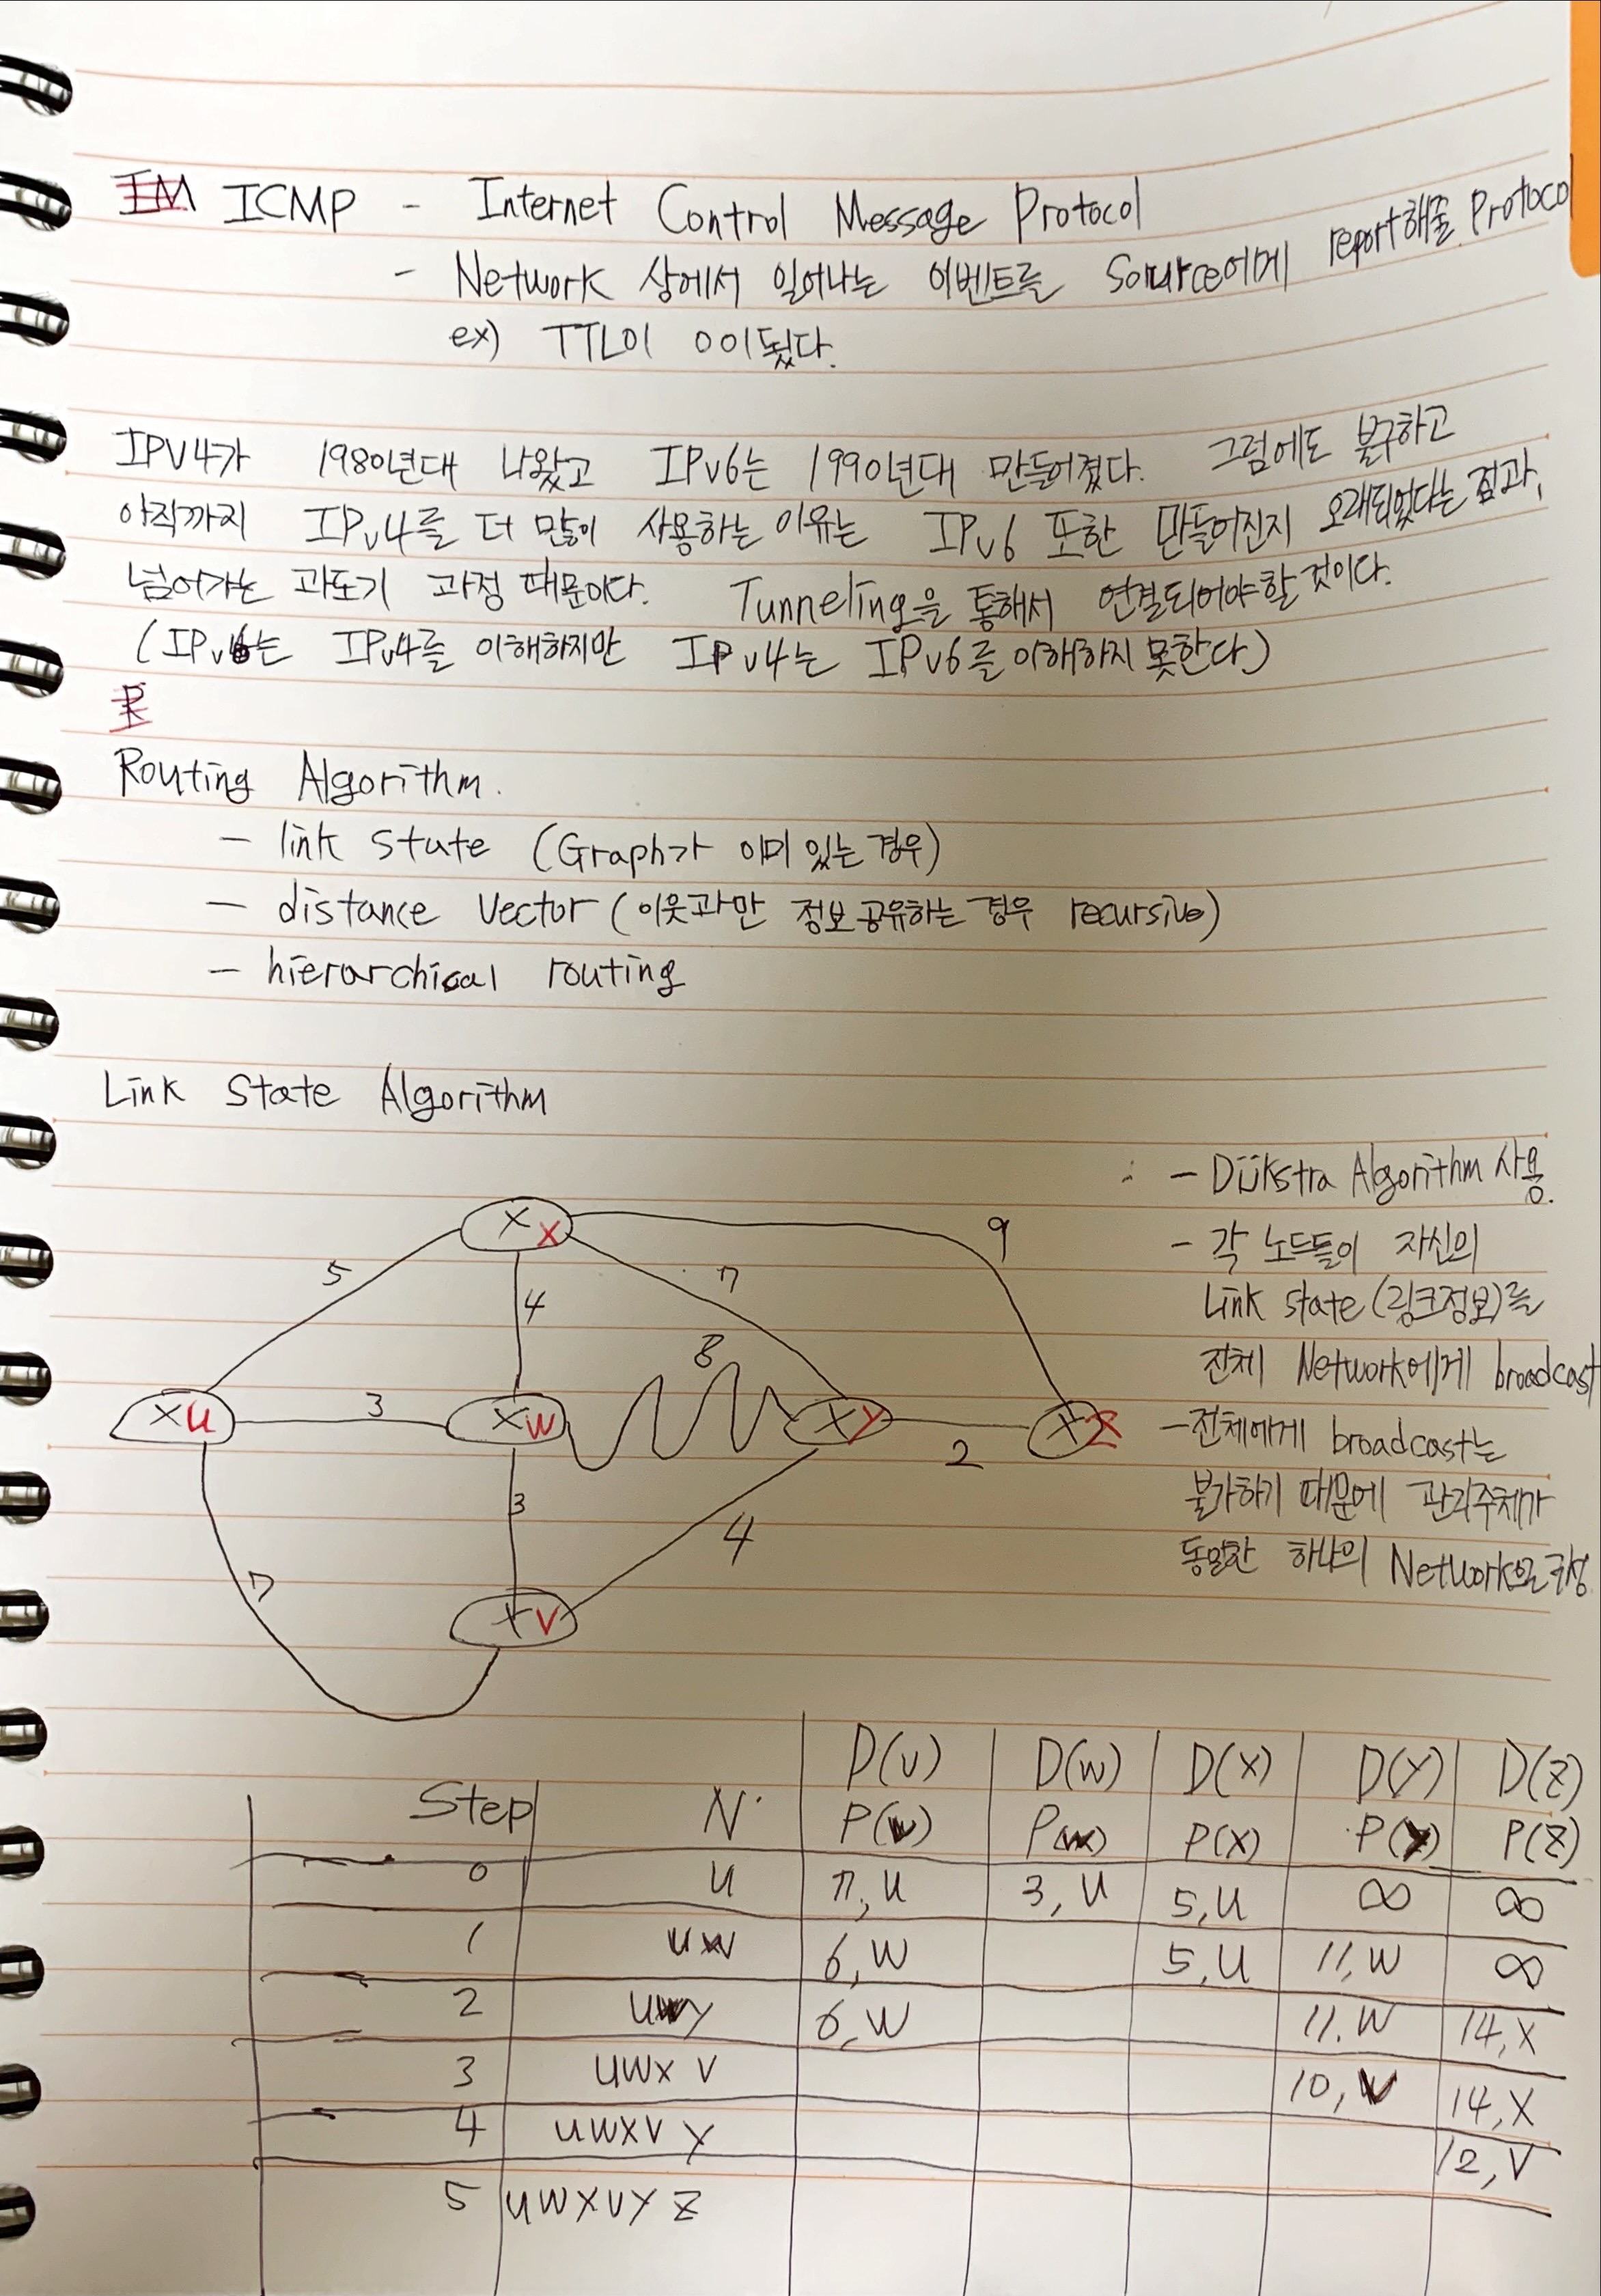 ICMP - Internet Control Message Protocol
- Network 상에서 일어나는 이벤트를 Source에게 report해줄 Protocol
ex) TTL이 0이됐다.
IPV4가 1980년대 나왔고 IPv6는 1990년대 만들어졌다. 그럼에도 불구하고
아직까지 IPv4를 더 많이 사용하는 이유는 IPv6 또한 만들어진지 오래되었다는 점과,
넘어가는 과도기 과정 때문이다. Tunneling을 통해서 연결되어야할 것이다.
(IPv6는 IPv4를 이해하지만 IPv4는 IPv6를 이해하지 못한다)
Routing Algorithm.
- link state (Graph가 이미 있는 경우)
- distance vector (이웃과만 정보공유하는 경우 recursive)
- hierarchical routing
Link State Algorithm
- Dijkstra Algorithm 사용.
- 각 노드들이 자신의
Link state (링크정보)를
전체 Network에게 broadcast
- 전체에게 broadcast는
불가하기 때문에 관리주체가
동일한 하나의 Network으로 구성
X X
5
4
7
9
8
X U
3
X W
X Y
2
X Z
3
4
7
X V
D(v) D(w) D(x) D(y) D(z)
Step N P(v) P(w) P(x) P(y) P(z)
0 u 7, u 3, u 5, u ∞ ∞
1 uw 6, w 5, u 11, w ∞
2 6, w 11, w 14, x
3 uwxv 10, v 14, x
4 uwxvy 12, v
5 uwxvyz